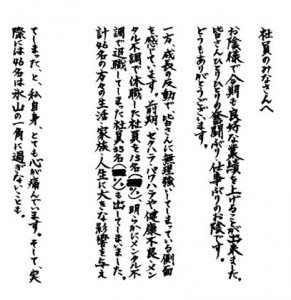 社員のみなさんへ
お陰様で今期も良好な業績を上げることが出来ました。
皆さんひとりひとりの奮闘ぶり、仕事ぶりのお陰です。
どうもありがとうございます。
一方、成長の反動で皆さんに無理強いしてしまっている側面
を感じています。前期、セクハラ・パワハラや健康不良・メン
タル不調で休職した社員を13名(%)、明らかにメンタル不
調で退職してしまった社員を33名(%)も出してしまいました。
計46名の方々の生活・家族・人生に大きな影響を与え
てしまった、と、私自身、とても心が痛んでいます。そして、実
際には46名は氷山の一角に過ぎないことも。